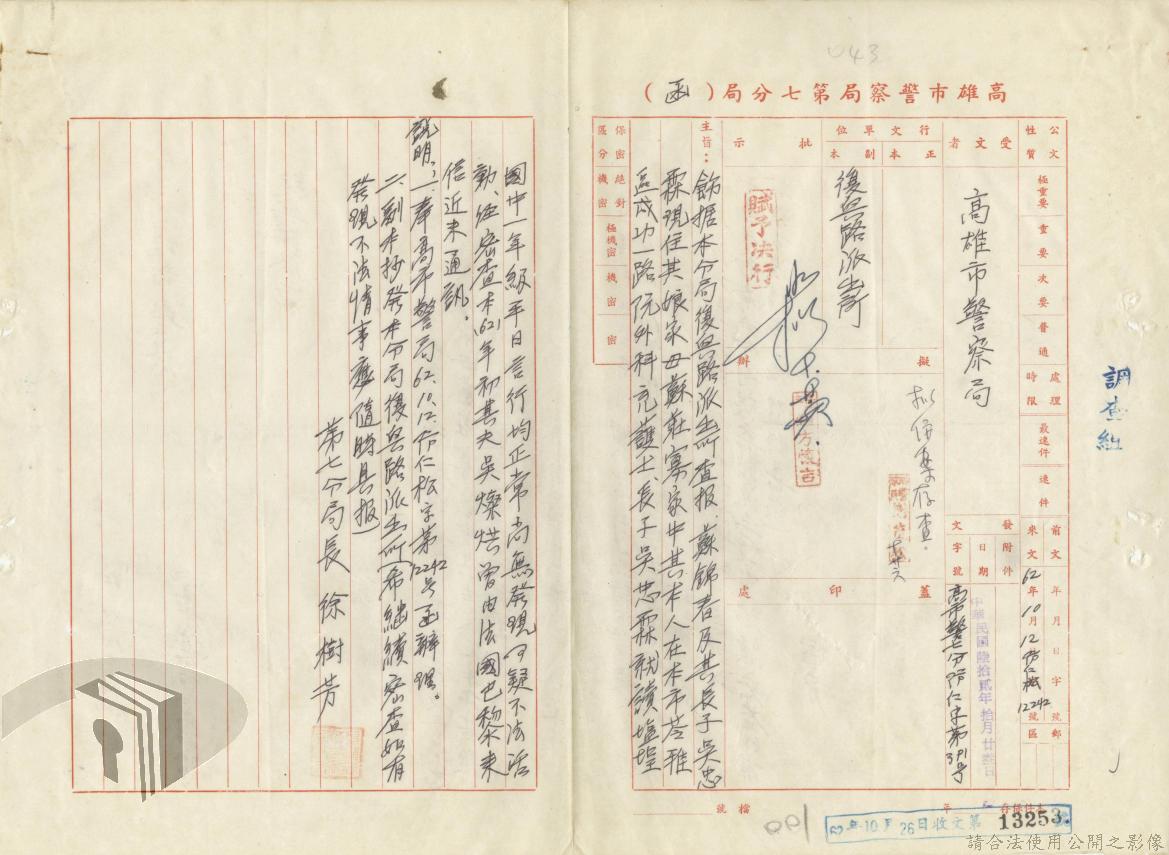 043
高雄市警察局第七分局（函）
公文性質
極重要
重要
次要
普通
處理時限
最速件
速件
前文
來文
年月日字號
62年10月12
12242號
郵區
受文者
高雄市警察局
發文
附件
日期
字號
中華民國陸拾貳年拾月廿叁日
高市警七分防仁字第391号
行文單位
正本
副本
復興路派出所
批示
賦予決行
擬辦
拟併案存查。
蓋印處
保密區分
絕對機密
極機密
機密
密
主旨：飭據本分局復興路派出所查報蘇錦春及其長子吳忠
霖現住其娘家母蘇莊寡家中其本人在本市苓雅
區成功一路阮外科充護士、長子吳忠霖就讀塩埕
國中一年級平日言行均正常尚無發現可疑不法活
動、經密查本(62)年初其夫吳燦烘曾由法國巴黎來
信近未通訊。
說明：一、奉高市警局62.10.12.防仁松字第12242号函辦理。
二、副本抄發本分局復興路派出所(希繼續密查如有
發現不法情事應隨時具報)
第七分局長 徐樹芳
調查組
檔號
年
本件保存
62年10月26日收文第13253號
請合法使用公開之影像